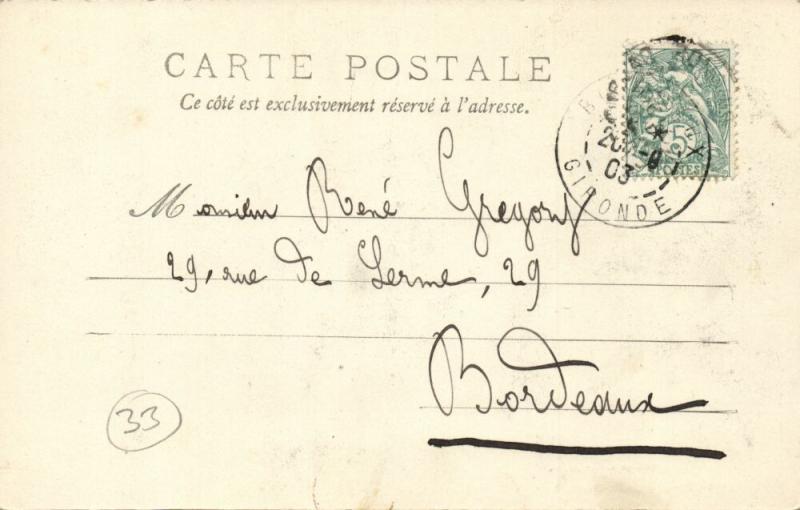 CARTE POSTALE
Ce côté est exclusivement réservé à l'adresse.
GIRONDE
03
5
POSTES
Monsieur René Gregory
29, rue de Lerme, 29
Bordeaux
33